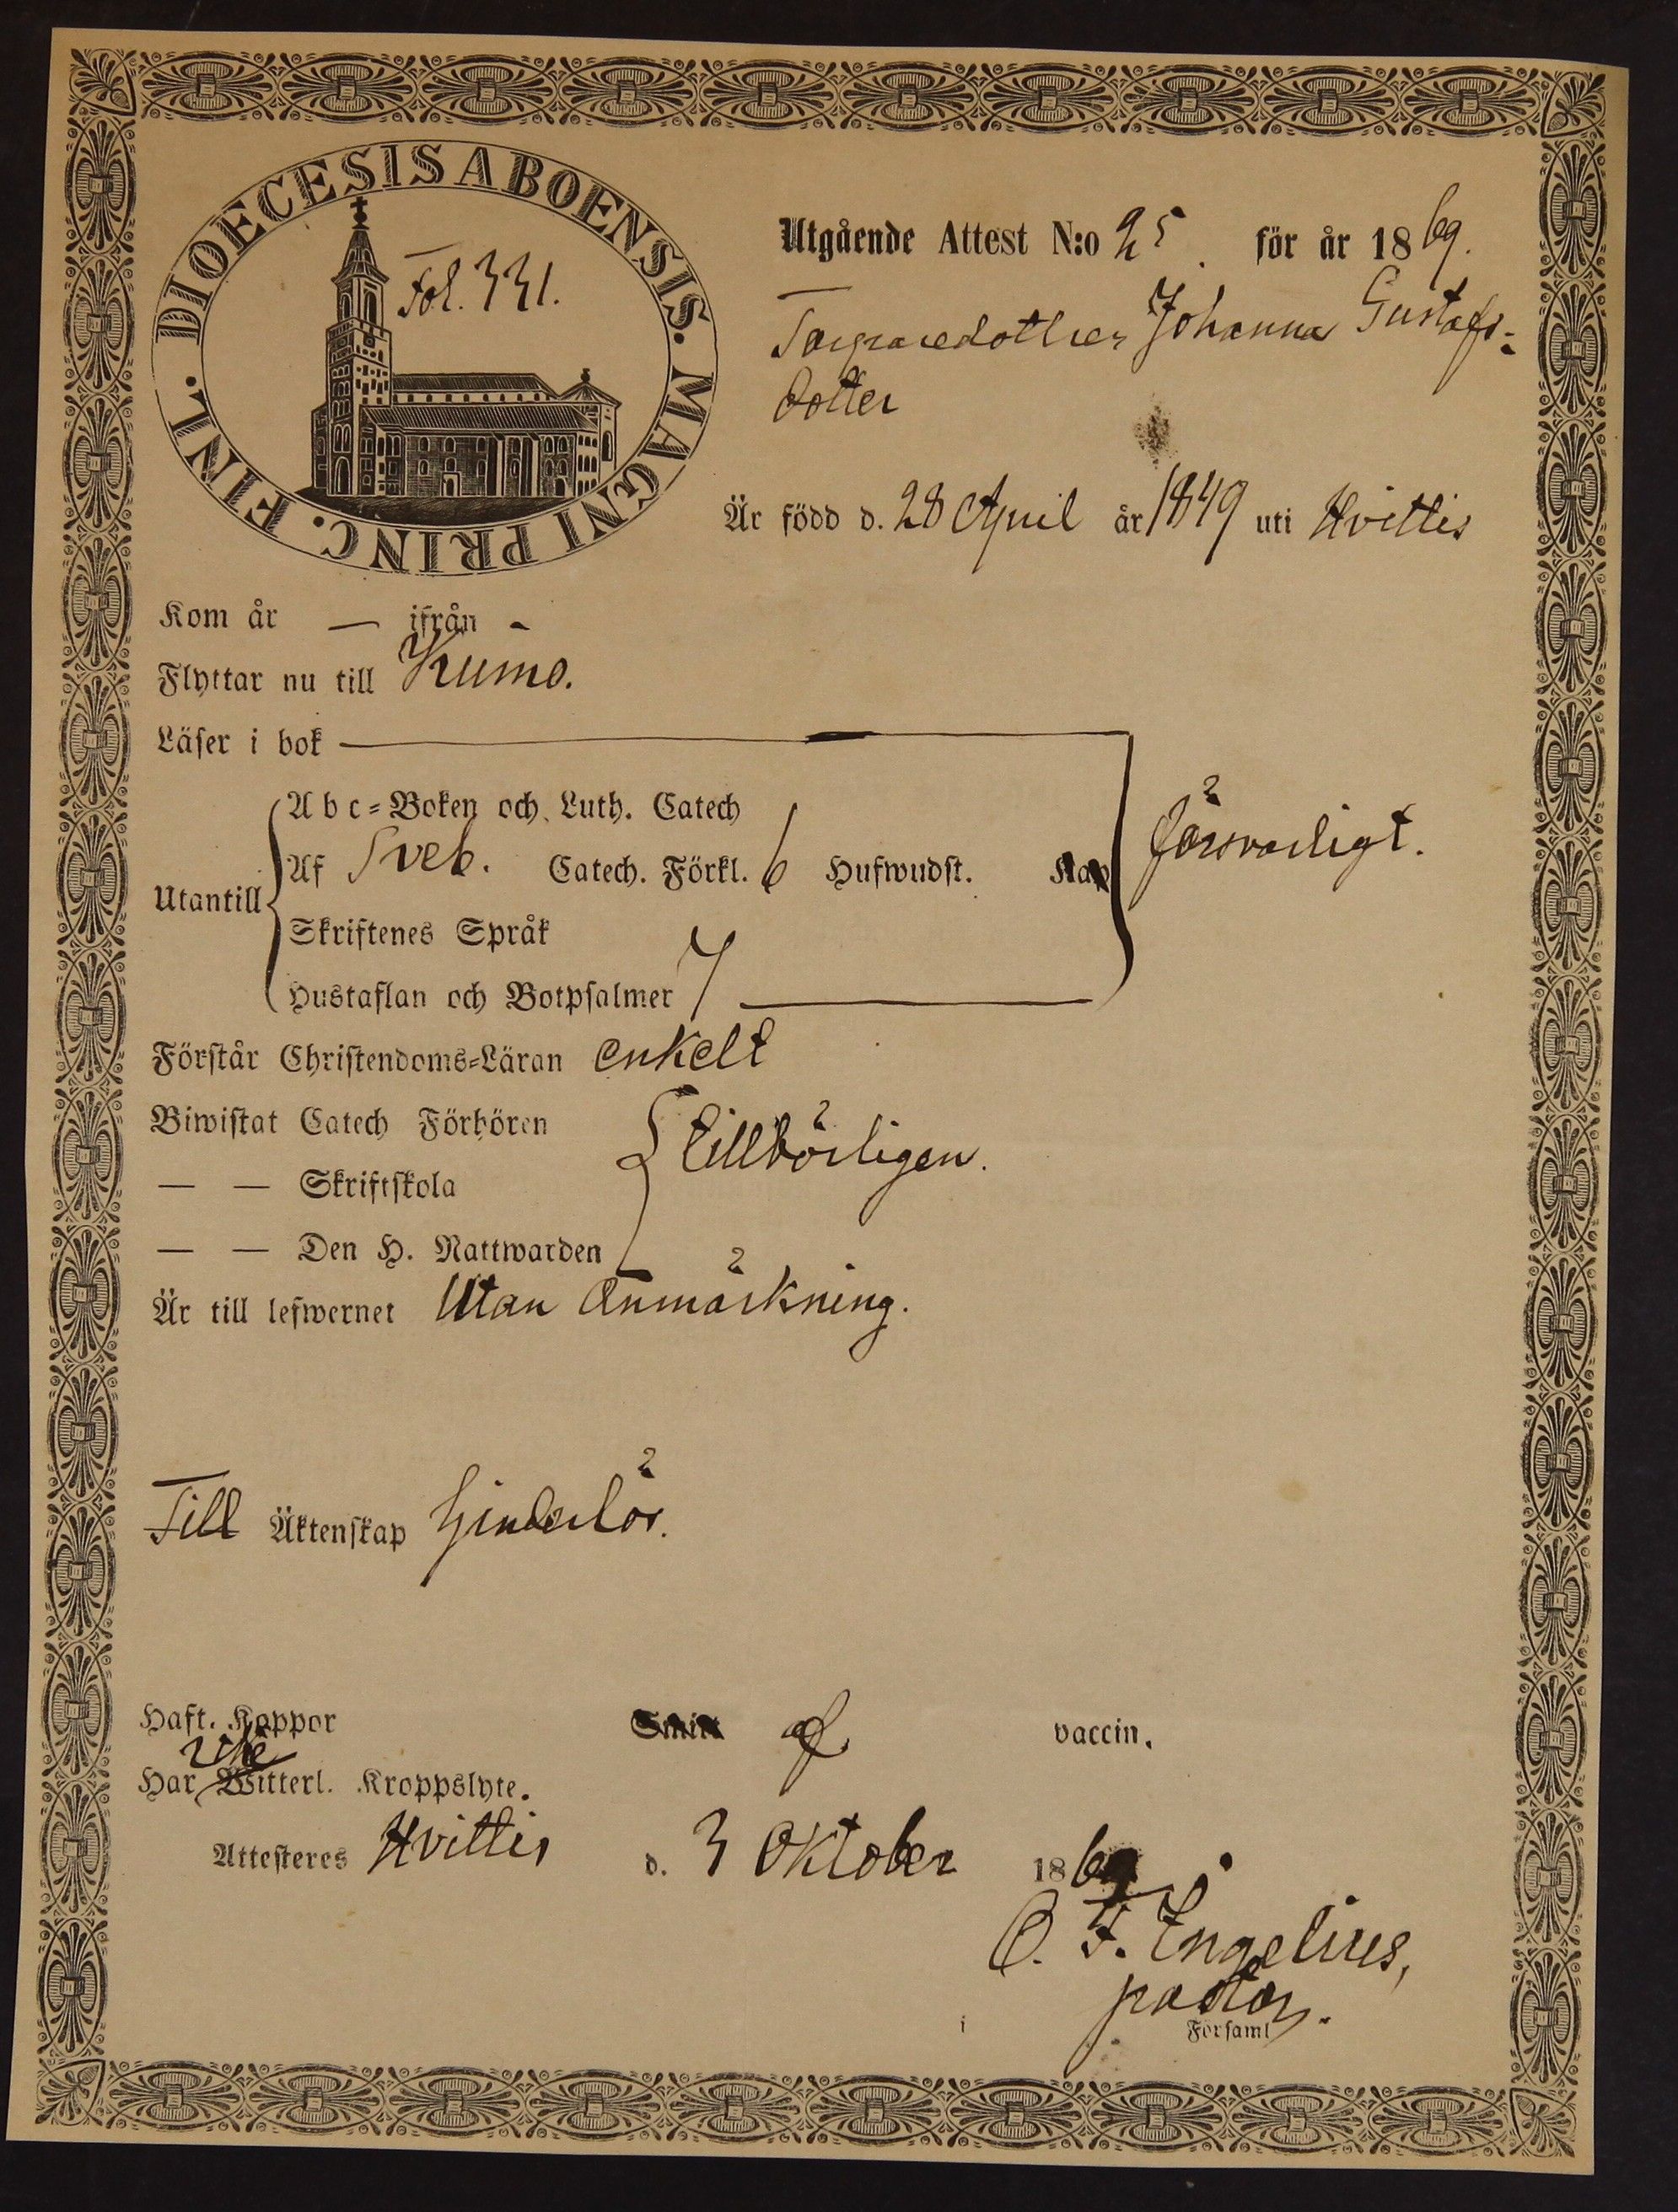 DIOECESIS ABOENSIS. MAGNI PRINC. FINL.
Fol. 331.
Utgående Attest N:o 25. för år 1869.
Torparedotter Johanna Gustafs-
dotter
Är född d. 28 April år 1849 uti Hvittis
Kom år — ifrån -
Flyttar nu till Kumo.
Läser i bok
Abc-Boken och Luth. Catech
Utantill
Af Sveb. Catech. Förkl. 6 Hufwudst. Kap
försvarligt.
Skriftenes Språk
Hustaflan och Botpsalmer 7
Förstår Christendoms-Läran enkelt
Biwistat Catech Förhören
tillbörligen.
— — Skriftskola
— — Den H. Nattwarden
Är till lefwernet Utan Anmärkning.
Till Äktenskap hinderlös.
Haft. Koppor vaccin.
icke
Har Witterl. Kroppslyte.
Attesteres Hvittis d. 3 Oktober 1869
O. F. Engelius,
pastor.
i Församl